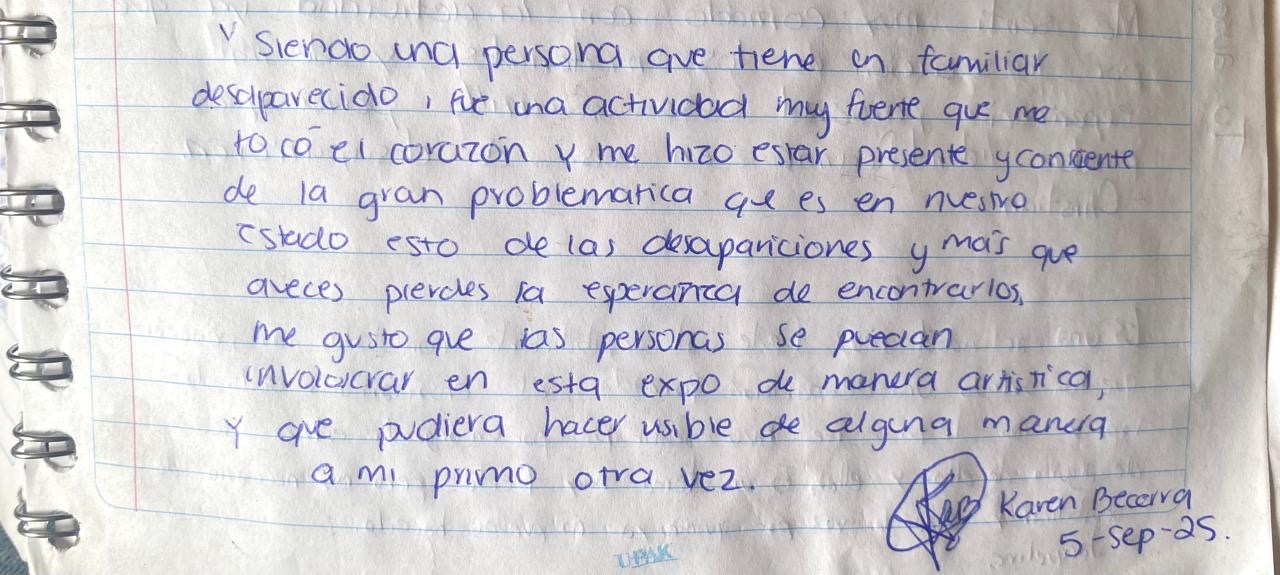 Y siendo una persona que tiene un familiar
desaparecido, fue una actividad muy fuerte que me
tocó el corazón y me hizo estar presente y consiente
de la gran problematica que es en nuestro
Estado esto de las desapariciones y más que
aveces pierdes la esperanza de encontrarlos,
me gusto que las personas se puedan
involucrar en esta expo de manera artistica,
Y que pudiera hacer visible de alguna manera
a mi primo otra vez.
Karen Becerra
5-sep-25.